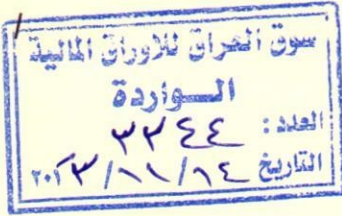 سوق العراق للاوراق المالية
الـواردة
العدد : ٣٣٤٤
التاريخ ١٤/١١/٢٠٢٣